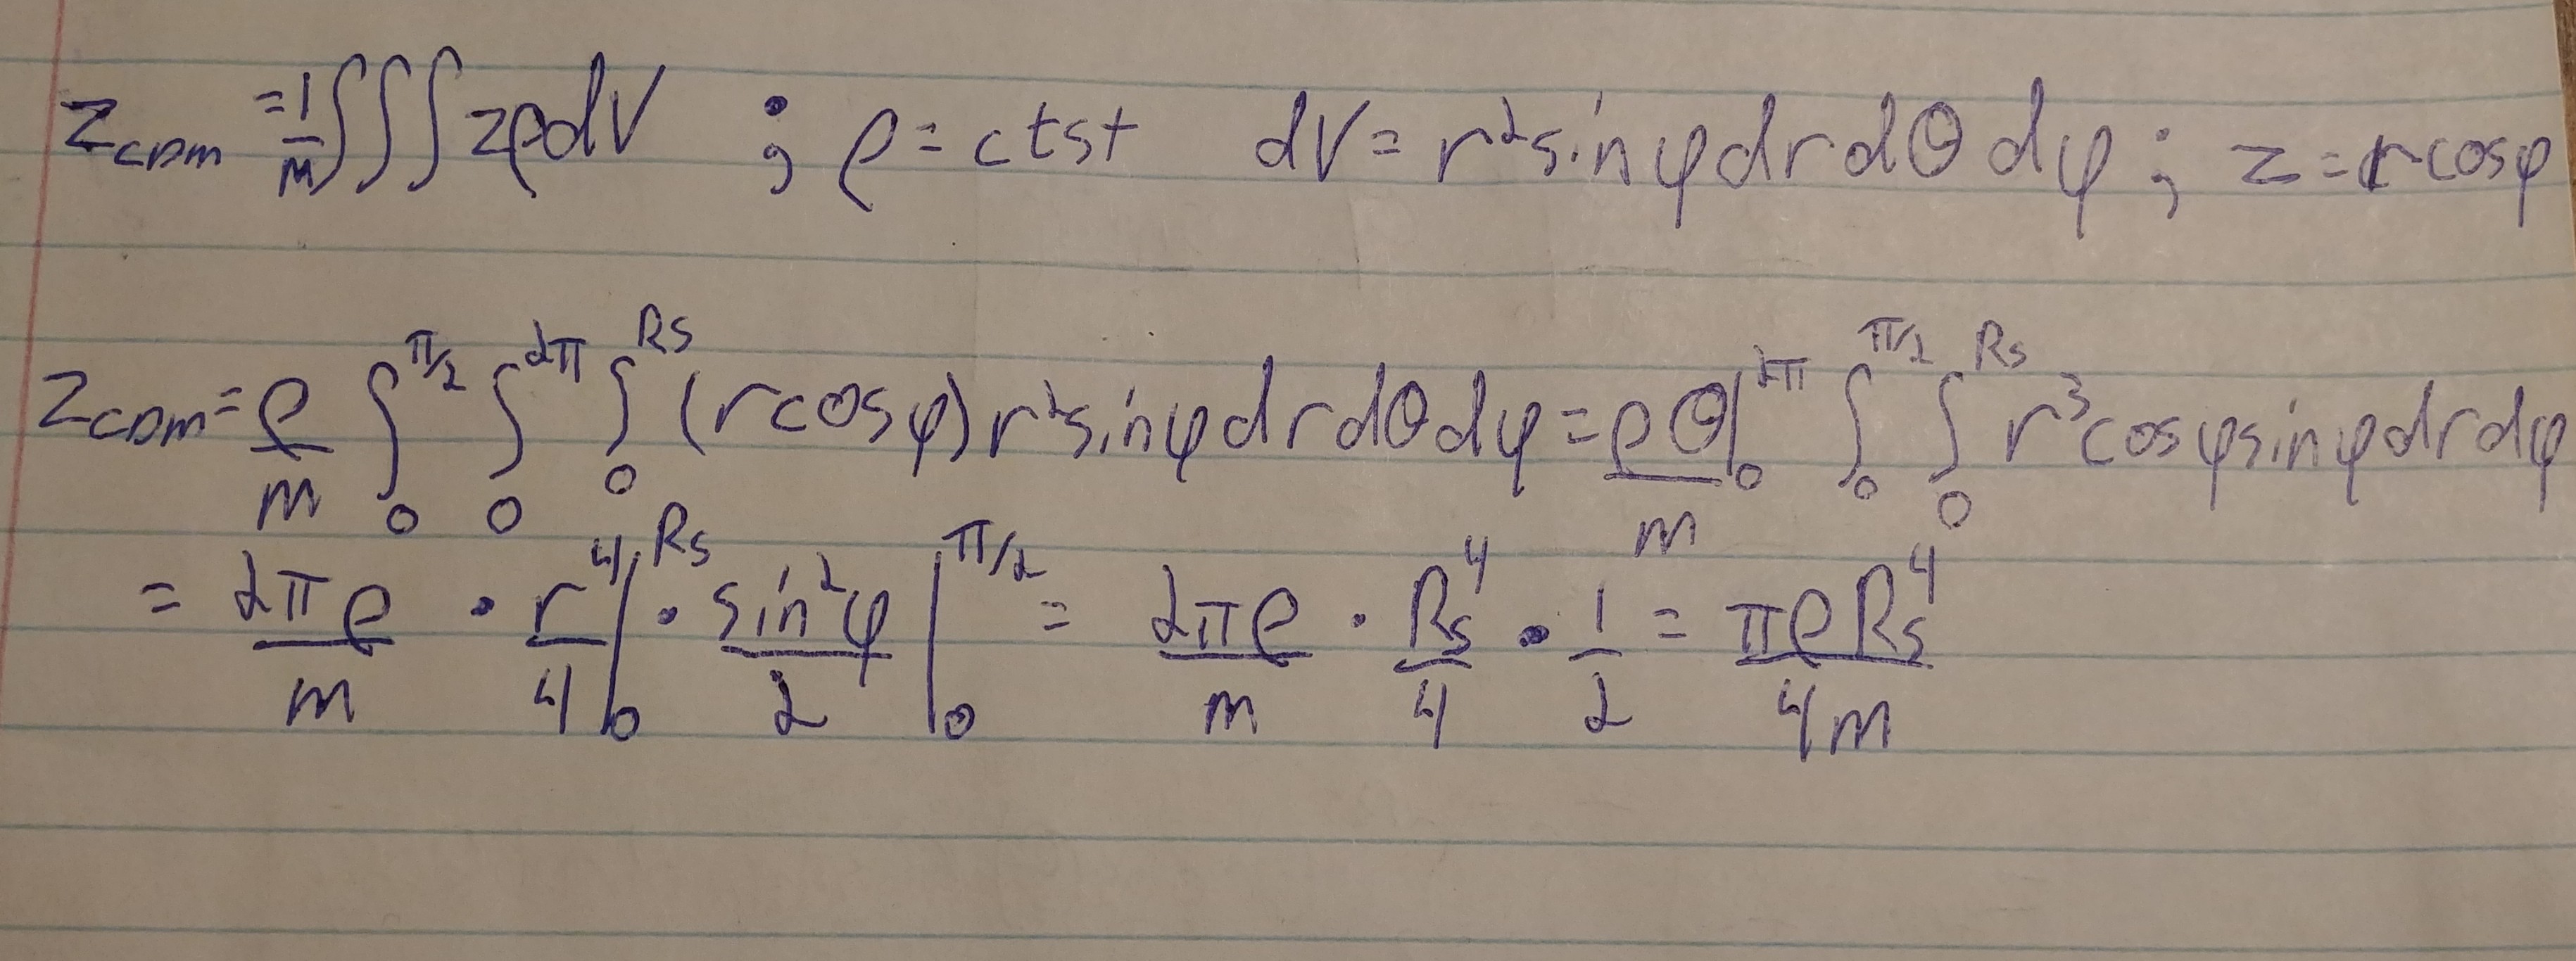 z_CDM = 1/m ∫∫∫ zρdV ; ρ = ctst dV = r²sinφdrdθdφ ; z = rcosφ
z_CDM = ρ/m ∫₀^π/2 ∫₀^2π ∫₀^Rs (rcosφ)r²sinφdrdθdφ = ρθ/m |₀^2π ∫₀^π/2 ∫₀^Rs r³cosφsinφdrdφ
= 2πρ/m · r⁴/4 |₀^Rs · sin²φ/2 |₀^π/2 = 2πρ/m · Rs⁴/4 · 1/2 = πρRs⁴/4m